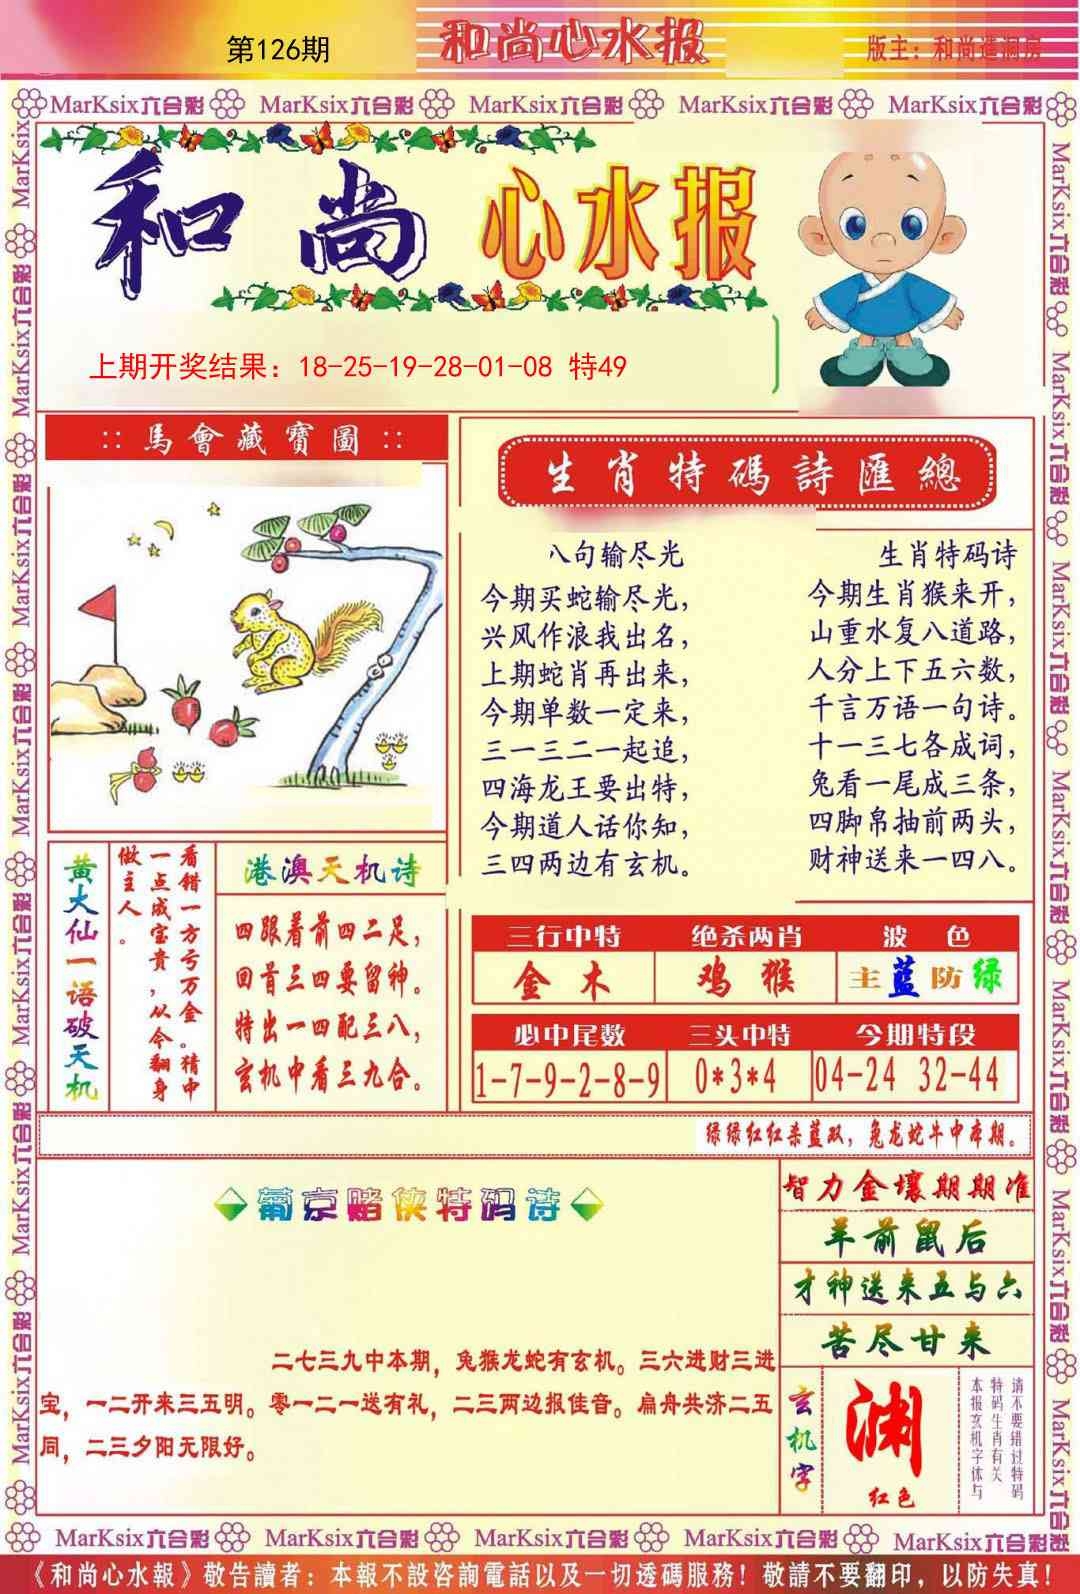 第126期
和尚心水报
版主：和尚造洞房
MarKsix六合彩 MarKsix六合彩 MarKsix六合彩 MarKsix六合彩 MarKsix六合彩
和尚 心水报
上期开奖结果：18-25-19-28-01-08 特49
:: 馬會藏寶圖 ::
生肖特碼詩匯總
八句输尽光
今期买蛇输尽光，
兴风作浪我出名，
上期蛇肖再出来，
今期单数一定来，
三一三二一起追，
四海龙王要出特，
今期道人话你知，
三四两边有玄机。
生肖特码诗
今期生肖猴来开，
山重水复八道路，
人分上下五六数，
千言万语一句诗。
十一三七各成词，
兔看一尾成三条，
四脚帛抽前两头，
财神送来一四八。
黄大仙一语破天机
看错一方亏万金。猜中
一点成宝贵，从今翻身
做主人。
港澳天机诗
四跟着前四二足，
回首三四要留神。
特出一四配三八，
玄机中看三九合。
三行中特 绝杀两肖 波色
金木 鸡猴 主蓝防绿
必中尾数 三头中特 今期特段
1-7-9-2-8-9 0*3*4 04-24 32-44
绿绿红红杀蓝双，兔龙蛇牛中本期。
葡京赌侠特码诗
二七三九中本期，兔猴龙蛇有玄机。三六进财三进
宝，一二开来三五明。零一二一送有礼，二三两边报佳音。扁舟共济二五
同，二三夕阳无限好。
智力金壤期期准
羊前鼠后
才神送来五与六
苦尽甘来
玄机字
渊
红色
请不要错过特码
特码生肖有关
本报玄机字体与
MarKsix六合彩 MarKsix六合彩 MarKsix六合彩 MarKsix六合彩 MarKsix六合彩
《和尚心水報》敬告讀者：本報不設咨詢電話以及一切透碼服務！敬請不要翻印，以防失真！